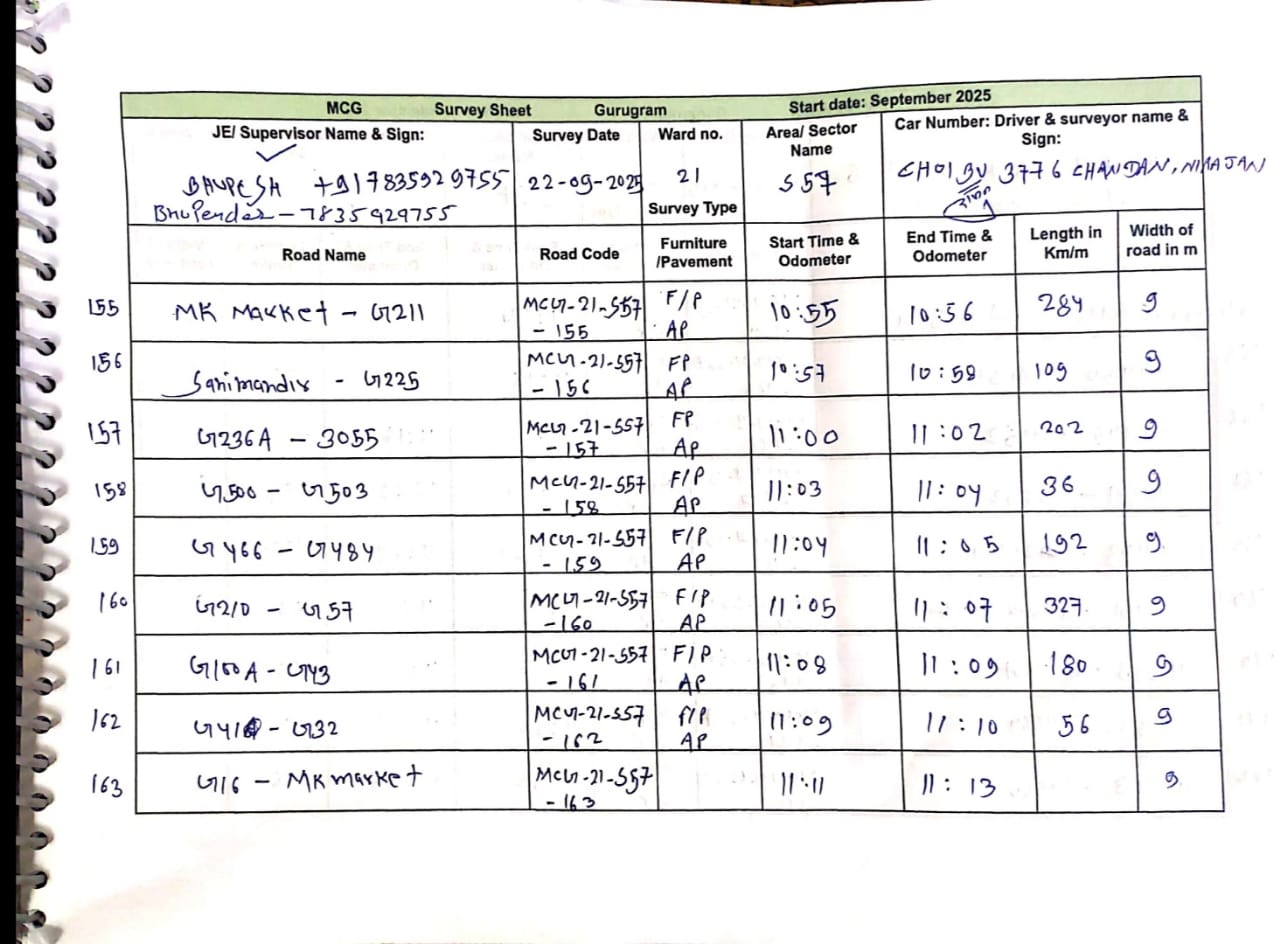 MCG Survey Sheet Gurugram Start date: September 2025
JE/ Supervisor Name & Sign:
BHUPESH +917835929755
Bhupender - 7835929755
Survey Date
22-09-2025
Ward no.
21
Survey Type
Area/ Sector
Name
S57
Car Number: Driver & surveyor name &
Sign:
CH01BV 3776 CHANDAN, NIRAJAN
Road Name Road Code Furniture /Pavement Start Time & Odometer End Time & Odometer Length in Km/m Width of road in m
155 MK Market - G211 MCG-21-S57 - 155 F/P AP 10:55 10:56 284 9
156 Sanimandir - G225 MCG-21-S57 - 156 FP AP 10:57 10:58 109 9
157 G236A - 3055 MCG-21-S57 - 157 FP AP 11:00 11:02 202 9
158 G500 - G503 MCG-21-S57 - 158 F/P AP 11:03 11:04 36 9
159 G466 - G484 MCG-21-S57 - 159 F/P AP 11:04 11:05 192 9
160 G210 - G57 MCG-21-S57 -160 F/P AP 11:05 11:07 327 9
161 G100A - G43 MCG-21-S57 - 161 F/P AP 11:08 11:09 180 9
162 - G32 MCG-21-S57 - 162 F/P AP 11:09 11:10 56 9
163 G16 - MK market MCG-21-S57 - 163 11:11 11:13 9